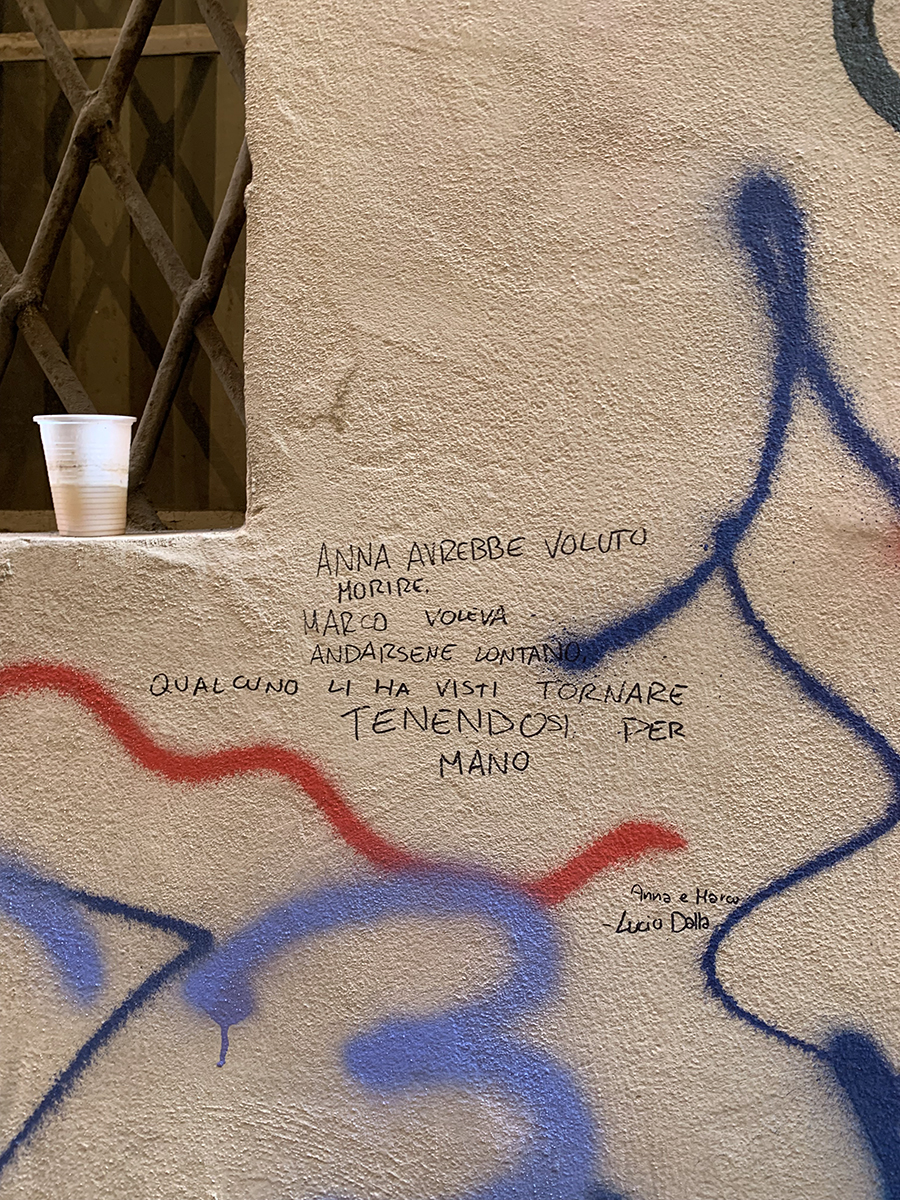 ANNA AVREBBE VOLUTO
MORIRE.
MARCO VOLEVA
ANDARSENE LONTANO,
QUALCUNO LI HA VISTI TORNARE
TENENDOSI PER
MANO
Anna e Marco
- Lucio Dalla